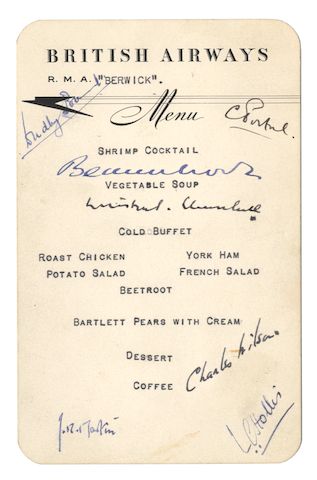 BRITISH AIRWAYS
R. M. A. "BERWICK".
Dudley Pound
Menu
C Portal.
SHRIMP COCKTAIL
Beaverbrook
VEGETABLE SOUP
Winston S. Churchill
COLD BUFFET
ROAST CHICKEN YORK HAM
POTATO SALAD FRENCH SALAD
BEETROOT
BARTLETT PEARS WITH CREAM
DESSERT
COFFEE
Charles Wilson
J. M. Martin
LC Hollis